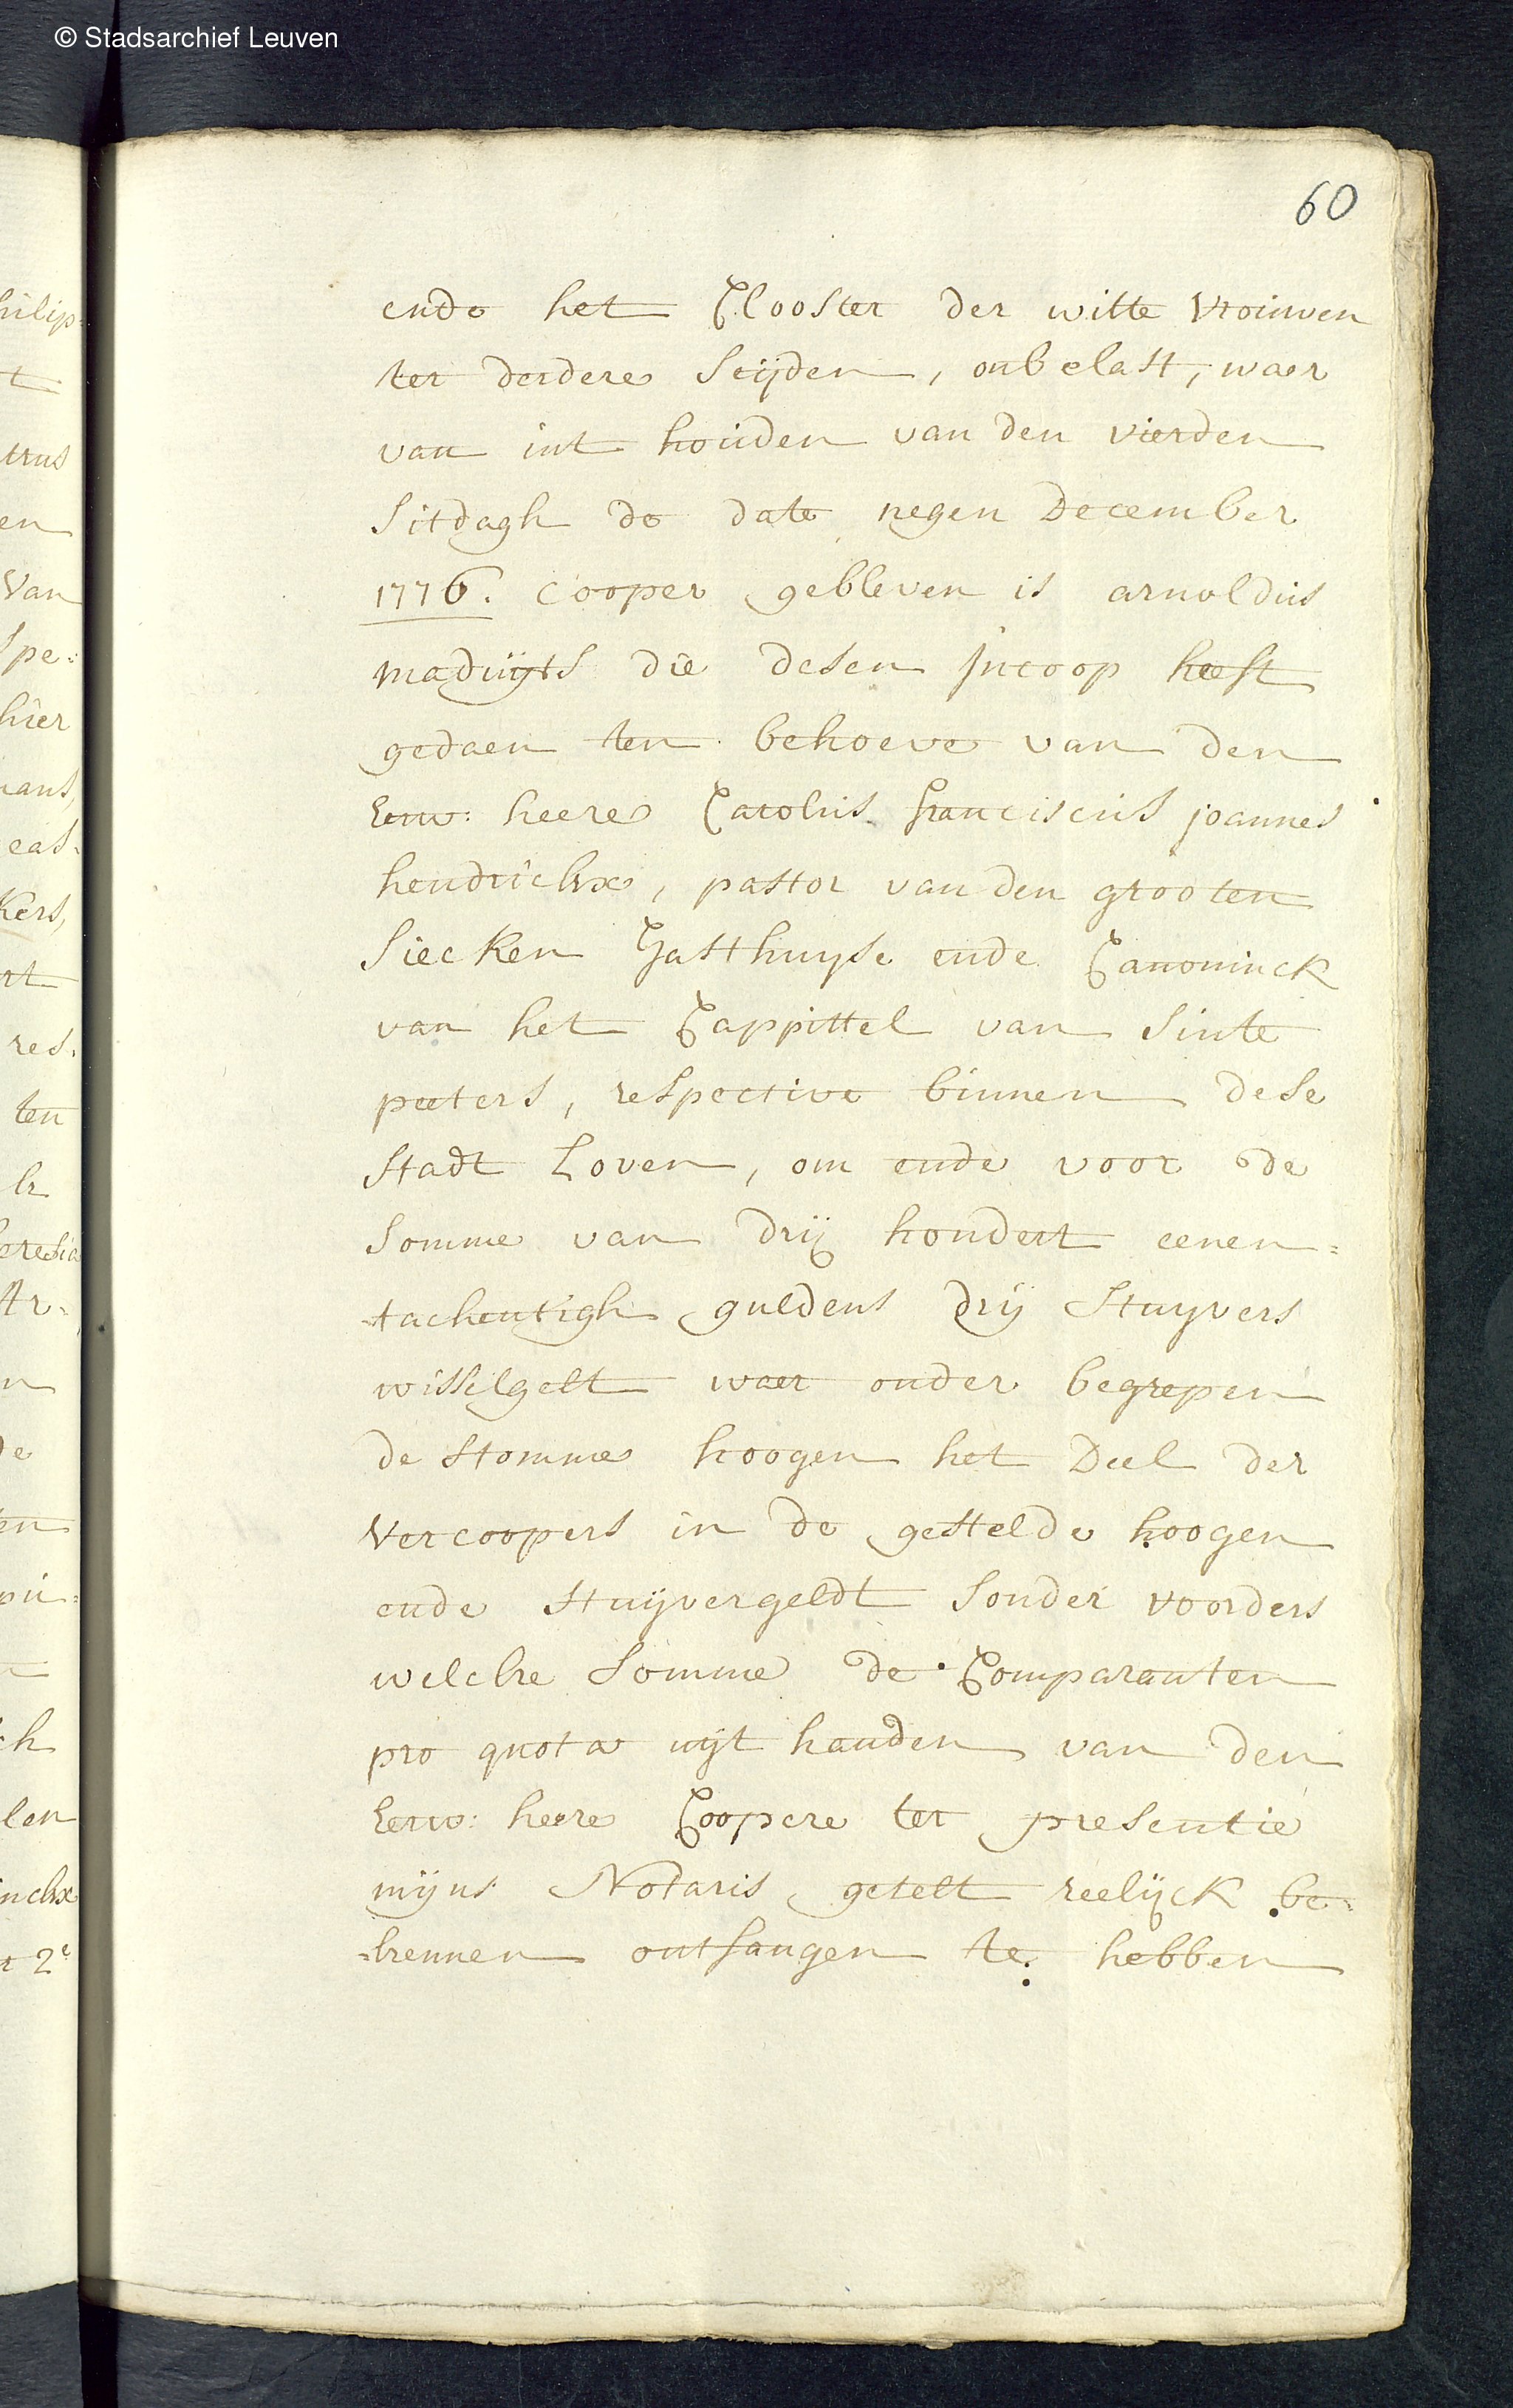 © Stadsarchief Leuven
60
ende het Clooster der witte vrouwen
ter derdere seijden, onbelast, waer
van int houden van den vierden
sitdagh de date negen December
1776. cooper gebleven is arnoldus
maduyts die desen incoop heeft
gedaen ten behoeve van den
Eerw: heere Carolus franciscus joannes
hendrickx, pastor van den grooten
siecken Gasthuyse ende Canoninck
van het Cappittel van Sinte
peeters, respective binnen dese
stadt Loven, om ende voor de
somme van drij hondert eenen=
-tachentigh guldens drij stuyvers
wisselgelt waer onder begrepen
de stomme hoogen het Deel der
vercoopers in de gestelde hoogen
ende stuijvergeldt sonder voorders
welcke somme de Comparanten
pro quota uijt handen van den
Eerw: heere Coopere ter presentie
mijns Notaris getelt reelijck be-
-kennen ontfangen te hebben